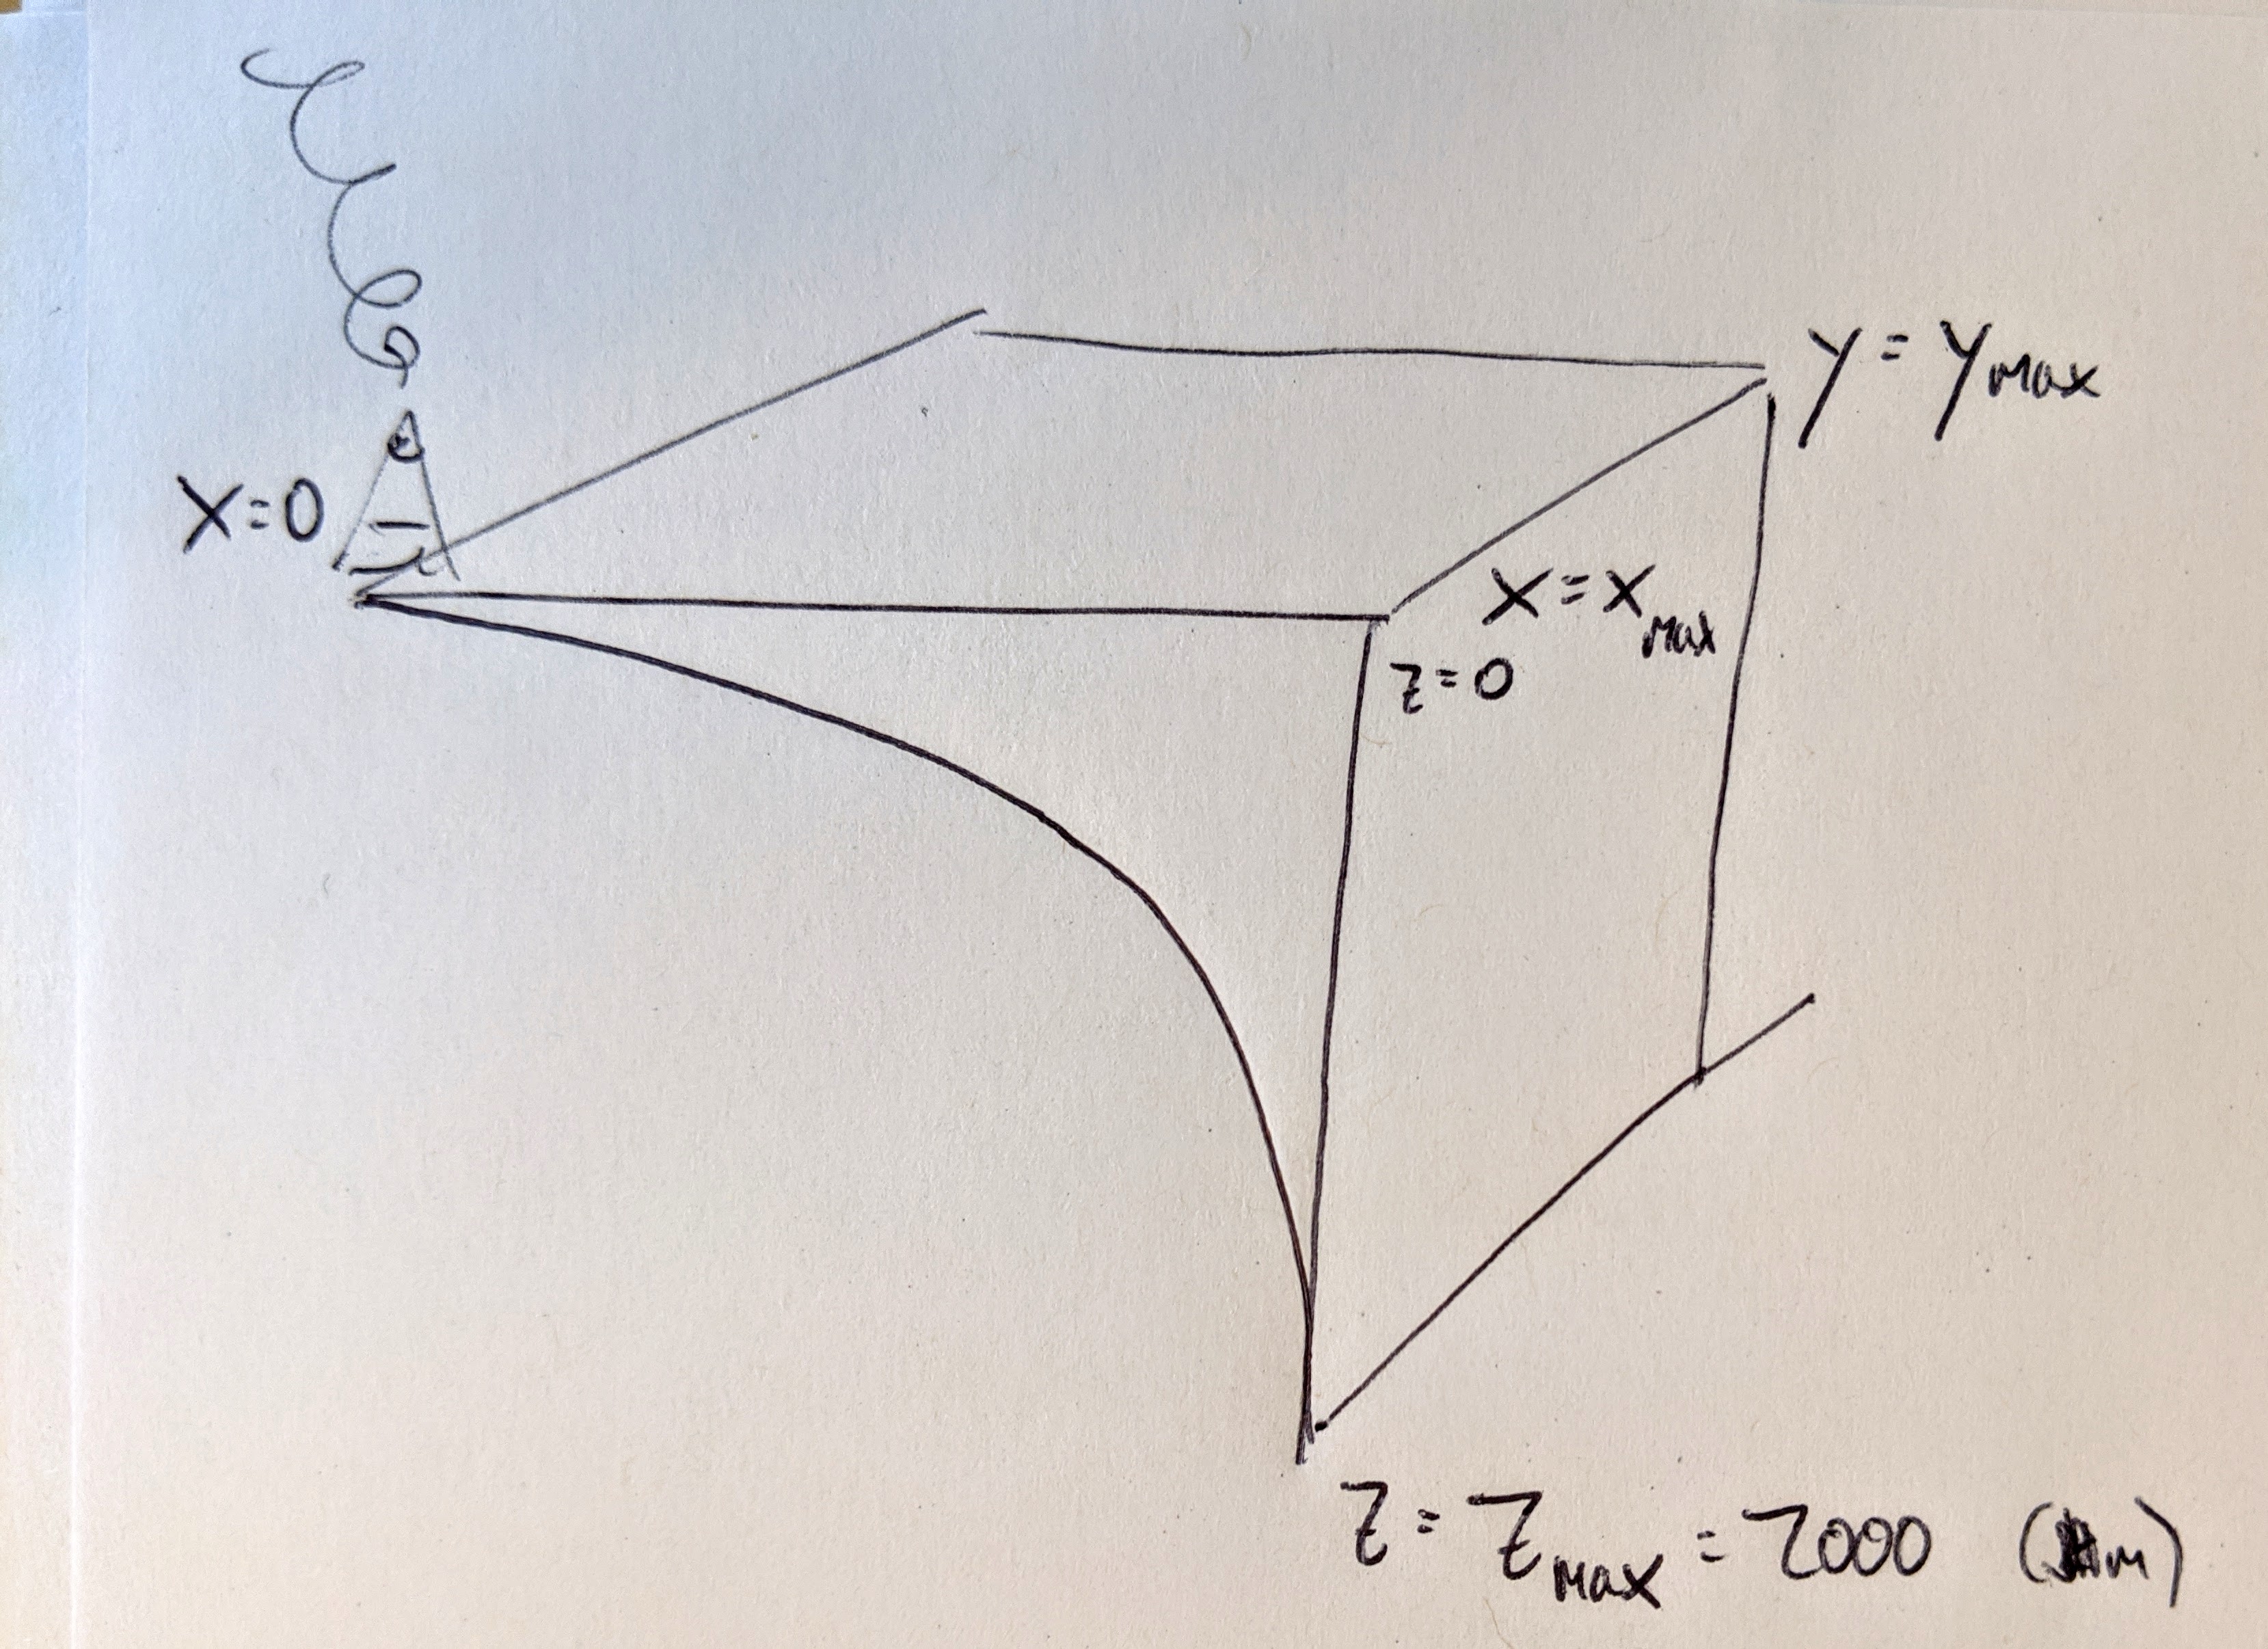 y = yMax
X=0
X=XMax
z=0
Z = ZMax = (m)